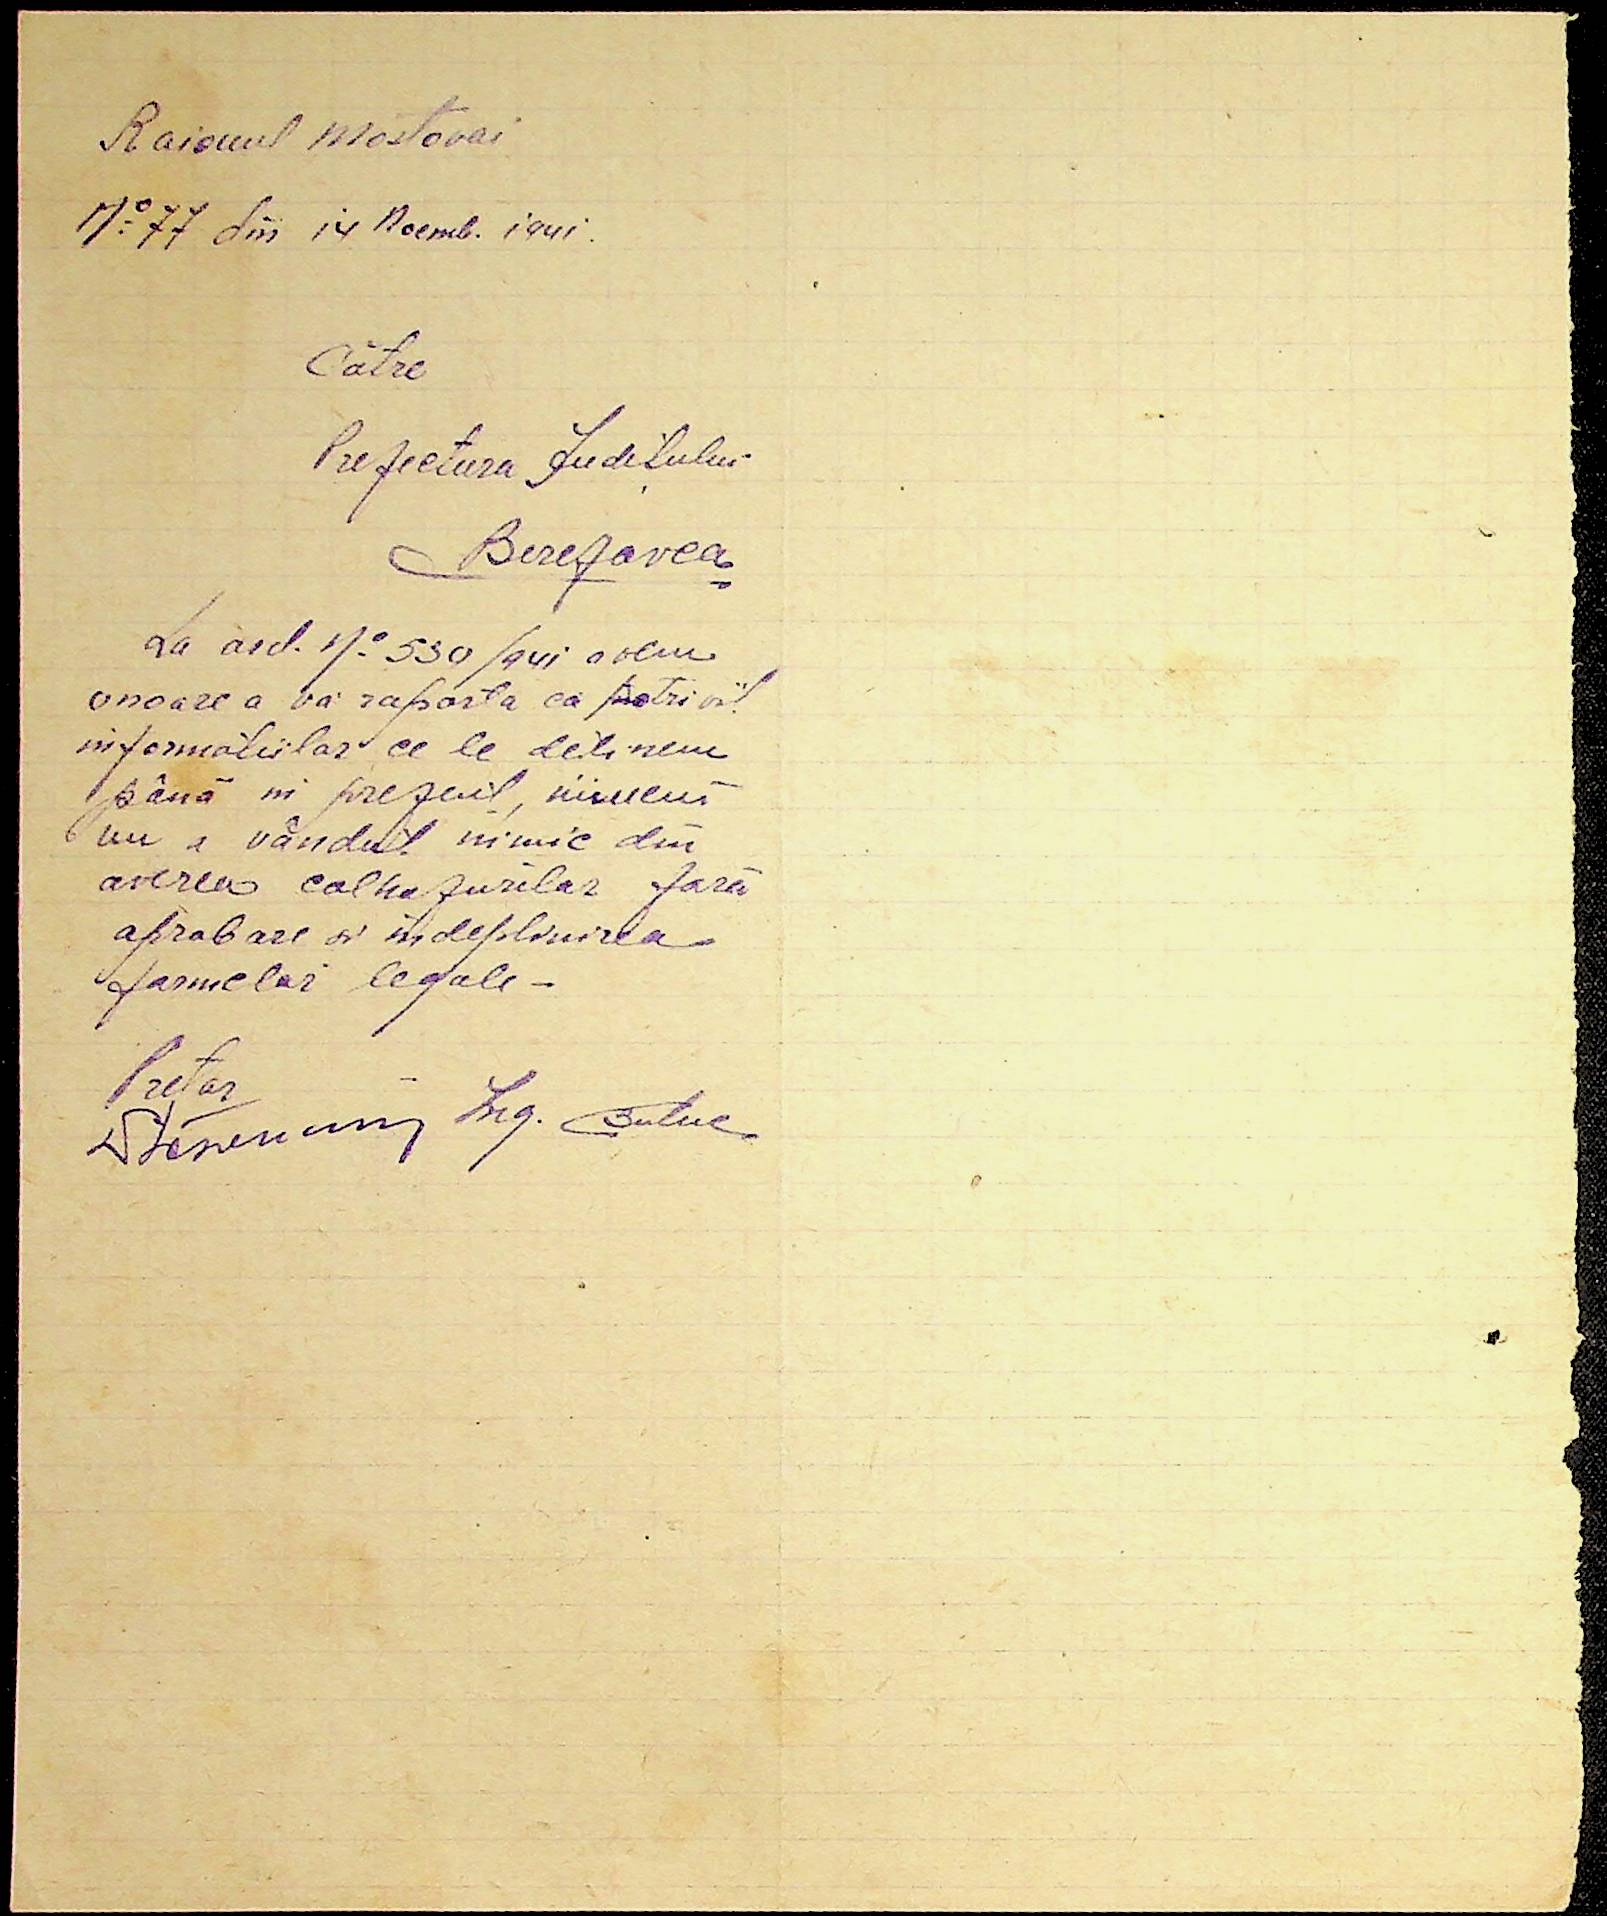 Raionul Mostovai
Nº 77 din 14 Noemb. 1941.
Către
Prefectura Județului
Berezovca
La ord. Nº 530/941 avem
onoare a vă raporta că potrivit
informațiilor ce le deținem
până in prezent, nimeni
nu a vândut nimic din
averea colhozurilor fară
aprobare si îndeplinirea
formelor legale -
Pretor
Ing. Butuc